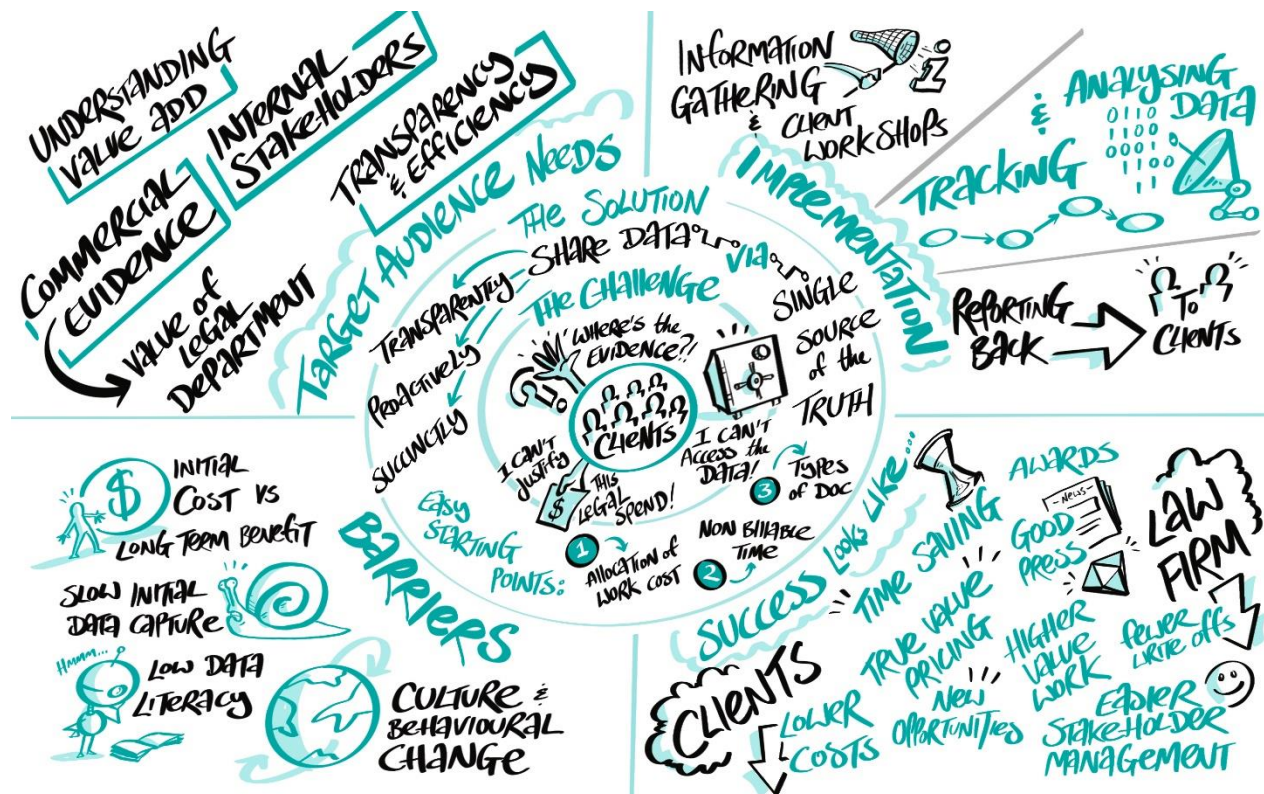 UNDERSTANDING
VALUE ADD
INTERNAL
STAKEHOLDERS
TRANSPARENCY
& EFFICIENCY
COMMERCIAL
EVIDENCE
VALUE OF
LEGAL
DEPARTMENT
TARGET AUDIENCE NEEDS
INFORMATION
GATHERING
& CLIENT
WORKSHOPS
IMPLEMENTATION
& ANALYSING
DATA
0110
1100
00001
1100
TRACKING
REPORTING
BACK
TO
CLIENTS
THE SOLUTION
SHARE DATA
VIA
SINGLE
SOURCE
OF THE
TRUTH
TRANSPARENTLY
PROACTIVELY
SUCCINCTLY
THE CHALLENGE
WHERE'S THE
EVIDENCE?!
CLIENTS
I CAN'T
JUSTIFY
THIS
LEGAL
SPEND!
$
I CAN'T
ACCESS THE
DATA!
EASY
STARTING
POINTS:
1
ALLOCATION OF
WORK COST
2
NON BILLABLE
TIME
3
TYPES
OF DOC
BARRIERS
$
INITIAL
COST VS
LONG TERM BENEFIT
SLOW INITIAL
DATA CAPTURE
HMMM...
LOW DATA
LITERACY
CULTURE &
BEHAVIOURAL
CHANGE
SUCCESS LOOKS LIKE...
CLIENTS
LOWER
COSTS
TIME SAVING
TRUE VALUE
PRICING
NEW
OPPORTUNITIES
AWARDS
-NEWS-
GOOD
PRESS
HIGHER
VALUE
WORK
LAW
FIRM
FEWER
WRITE OFFS
EASIER
STAKEHOLDER
MANAGEMENT